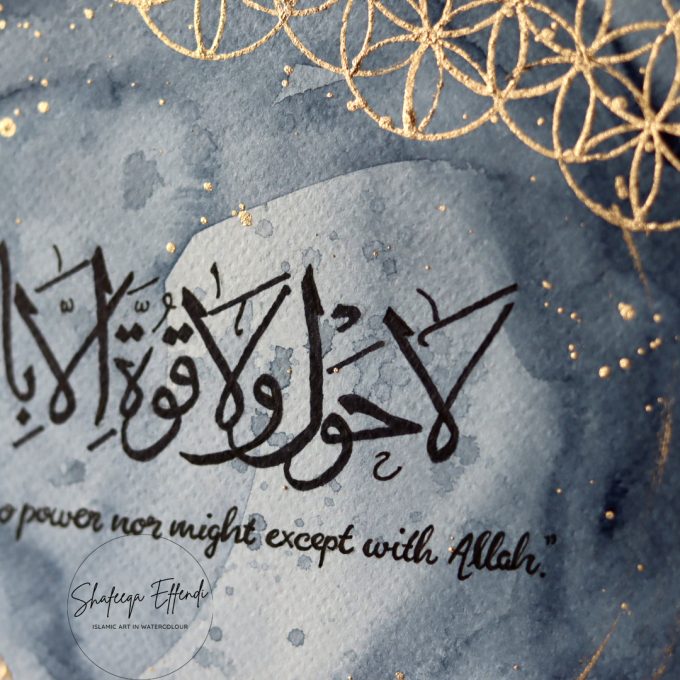 لا حول ولا قوّة إلّا با
o power nor might except with Allah.”
Shafeeqa Effendi
ISLAMIC ART IN WATERCOLOUR